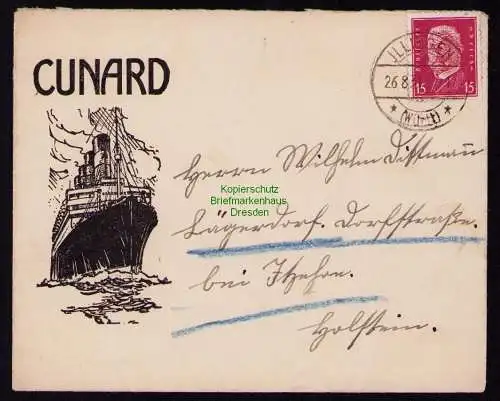 CUNARD
26.8.
(WÜRTT)
15 15
Herrn Wilhelm Dittmann
Kopierschutz
Briefmarkenhaus
Dresden
Lägerdorf. Dorfstraße.
bei Itzehoe.
Holstein.